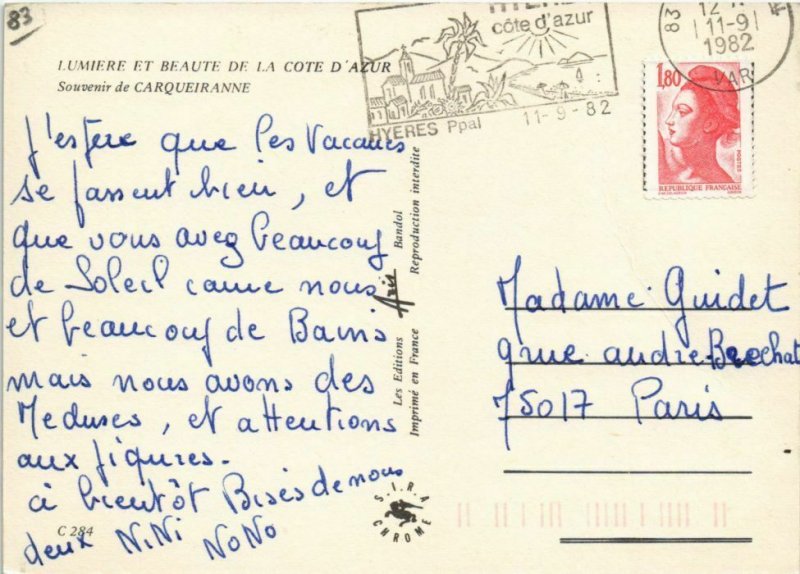 83
LUMIERE ET BEAUTE DE LA COTE D'AZUR
Souvenir de CARQUEIRANNE
J'espere que les Vacances
se passent bien, et
que vous avez beaucoup
de Soleil comme nous
et beaucoup de Bains
mais nous avons des
Meduses, et attentions
aux figures.
à bientôt Bises de nous
deux NiNi NoNo
C 284
Les Editions Aris Bandol
Imprimé en France Reproduction interdite
S.I.R.A.
CHROME
côte d'azur
HYERES Ppal 11-9-82
83
11-9
1982
VAR
1,80
POSTES
REPUBLIQUE FRANÇAISE
Madame Guidet
9 rue andre Brechat
75017 Paris